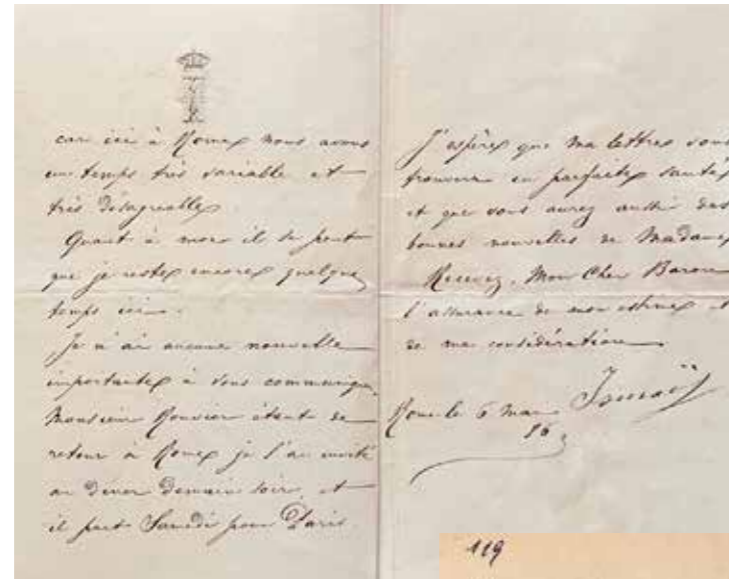 car ici à Rome nous avons
un temps très variable et
très désagréable
Quant à moi il se peut
que je reste encore quelque
temps ici.
Je n'ai aucune nouvelle
importante à vous communiquer
Monsieur Rouvier étant de
retour à Rome je l'ai invité
au dîner demain soir, et
il part Samedi pour Paris.
J'espère que ma lettre vous
trouvera en parfaite santé
et que vous aurez aussi des
bonnes nouvelles de Madame
Recevez, Mon Cher Baron
l'assurance de mon estime et
de ma considération
Ismaïl
Rome le 6 mars
86
119